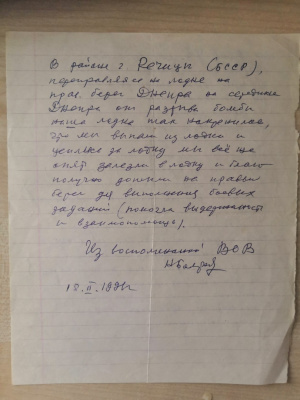 В районе г. Речицы (БССР),
переправляясь на лодке на
прав. берег Днепра на середине
Днепра от разрыва бомбы
наша лодка так накренилась,
что мы выпали из лодки и
за лодку мы всё же
опять залезли в лодку и благо-
получно доплыли на правый
берег для выполнения боевых
заданий (помогла выдержанность
и взаимопомощь).
Из воспоминаний ВОВ
18.II.